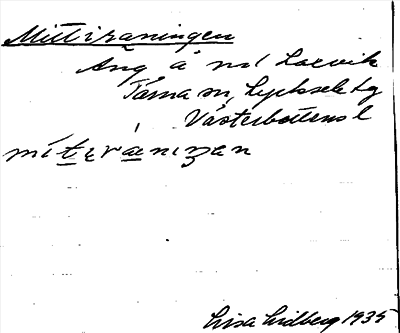 Mittiraningen
Äng å nö Laxvik
Tärna sn, Lycksele lg
Västerbottens l
mitiráningen
Lisa Lidberg 1935